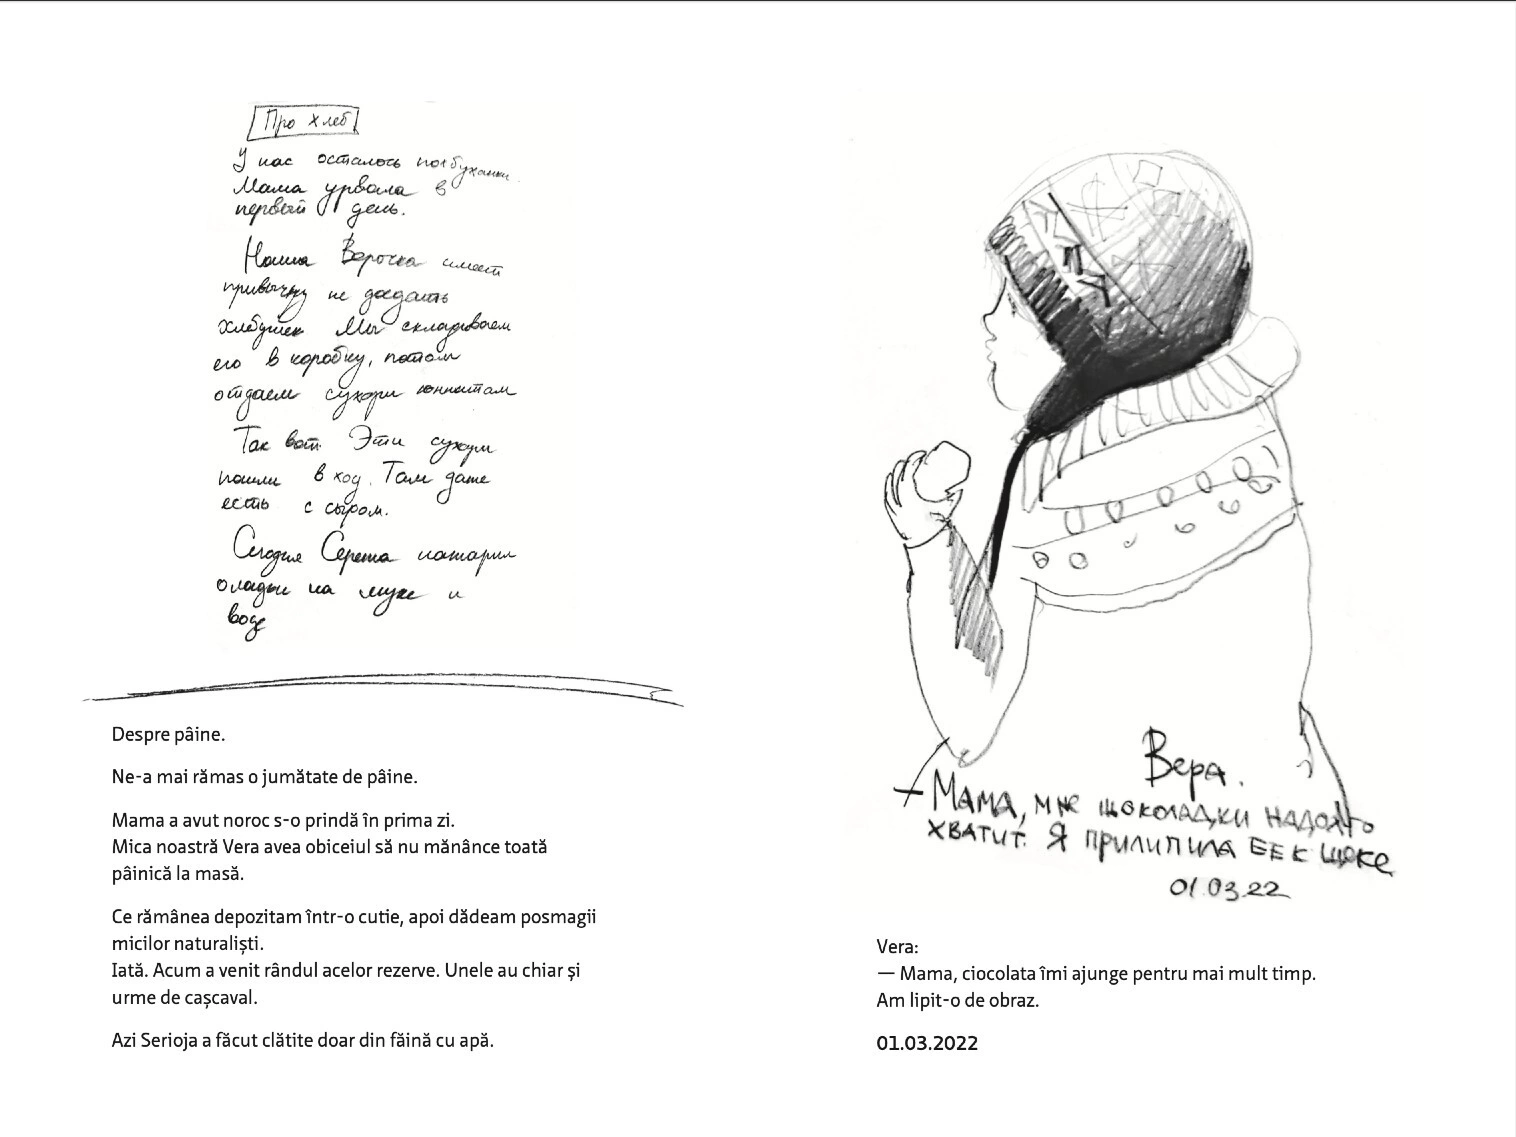 Про хлеб
У нас осталось полбуханки.
Мама урвала в
первый день.
Наша Верочка имеет
привычку не доедать
хлебушек Мы складываем
его в коробку, потом
отдаем сухари юннатам
Так вот. Эти сухари
пошли в ход. Там даже
есть с сыром.
Сегодня Сережа нажарил
оладьи на муке и
воде
Despre pâine.
Ne-a mai rămas o jumătate de pâine.
Mama a avut noroc s-o prindă în prima zi.
Mica noastră Vera avea obiceiul să nu mănânce toată
pâinică la masă.
Ce rămânea depozitam într-o cutie, apoi dădeam posmagii
micilor naturaliști.
Iată. Acum a venit rândul acelor rezerve. Unele au chiar și
urme de cașcaval.
Azi Serioja a făcut clătite doar din făină cu apă.
Вера.
— Мама, мне шоколадки надолго
хватит. Я прилипила ее к щеке
01.03.22
Vera:
— Mama, ciocolata îmi ajunge pentru mai mult timp.
Am lipit-o de obraz.
01.03.2022